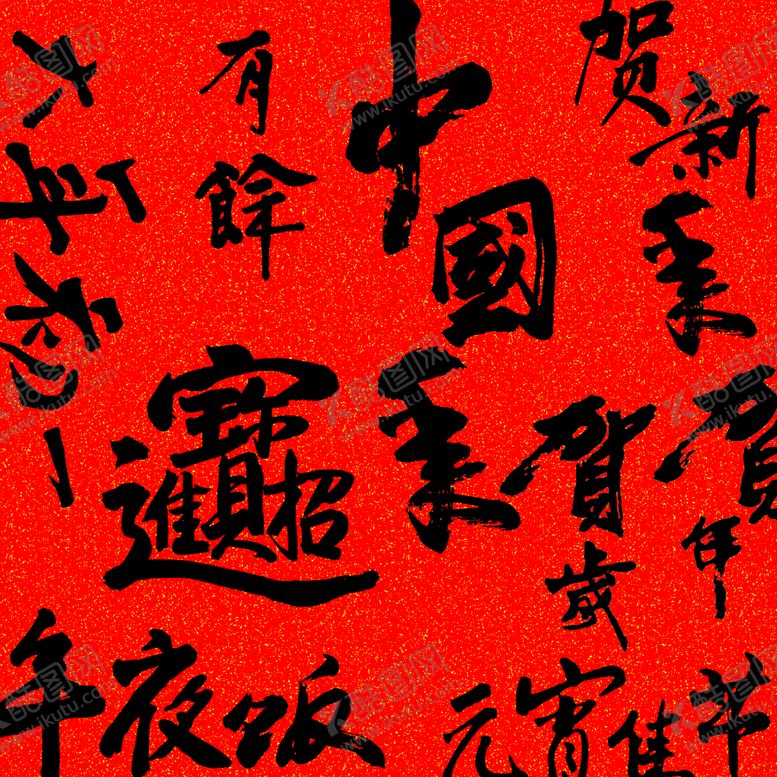 大年初一
有餘
中國年
贺新年
招財進寶
賀歲
賀年
年夜饭
元宵佳节
酷图网
www.ikutu.com